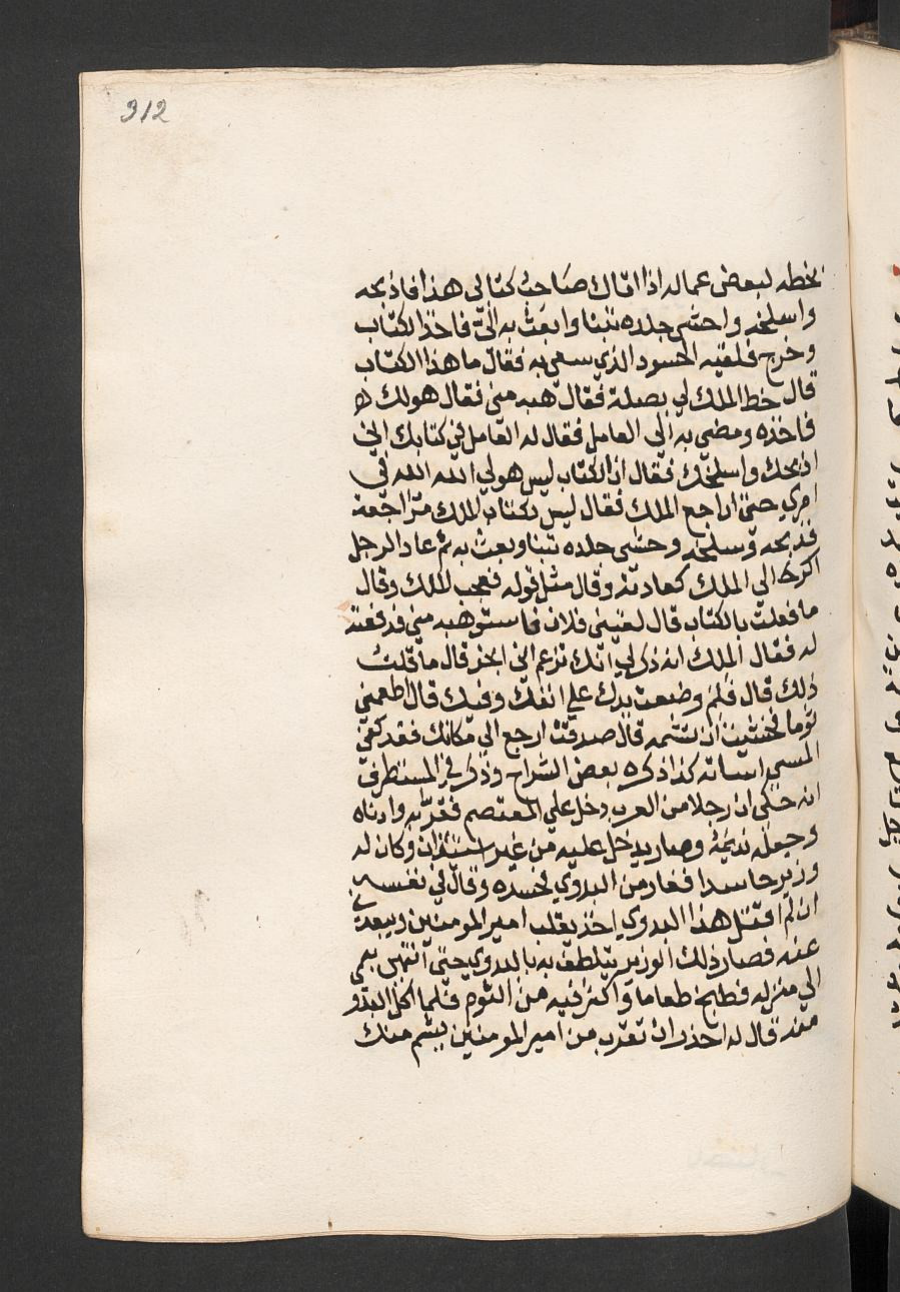 312
بخطه لبعض عماله اذا اتاك صاحب كتابي هذا فاذبحه
واسلخه واحشي جلده تبنا وابعث به اليّ فاخذ الكتاب
وخرج فلقيه الحسود الذي سعي به فقال ما هذا الكتاب
قال خط الملك لي بصلة فقال هبه مني فقال هو لك
فاخذه ومضي به الي العامل فقال له العامل في كتابك اني
اذبحك واسلخك فقال ان الكتاب ليس هو لي الله الله في
امري حتي اراجع الملك فقال ليس لكتاب الملك مراجعة
فذبحه وسلخه وحشي جلده تبنا وبعث به ثم عاد الرجل
الي الملك كعادته وقال مثل قوله فعجب الملك وقال
ما فعلت بالكتاب قال لقيني فلان فاستوهبه مني فدفعته
له فقال الملك انه ذكر لي انك تزعم اني ابخر قال ما قلت
ذلك قال فلم وضعت يدك علي انفك وفيك قال اطعمني
ثوما فخشيت ان تشمه قال صدقت ارجع الي مكانك فقد كفي
المسي اساته كذا ذكره بعض الشراح وذكر في المستطرف
انه حكي ان رجلا من العرب دخل علي المعتصم فقربه وادناه
وجعله نديمه وصار يدخل عليه من غير استئذان وكان له
وزير حاسد فغار من البدوي لحسده وقال في نفسه
ان لم اقتل هذا البدوي اخذ بقلب امير المومنين ويبعدني
عنه فصار ذلك الوزير يتلطف به بالبدوي حتي اتي به
الي منزله فطبخ طعاما واكثر فيه من الثوم فلما اكل البدو
منه قال له احذر ان تقرب من امير المومنين يشم منك